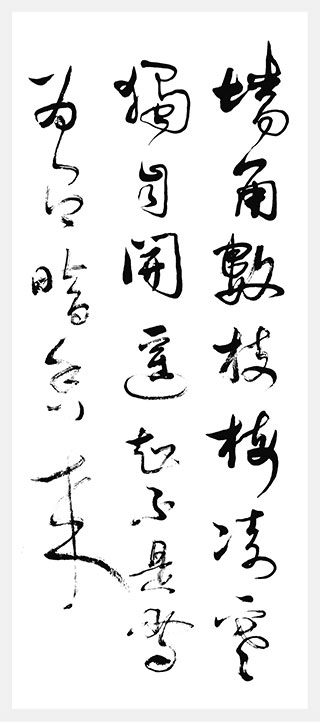 墙角數枝梅凌寒
獨自開遥知不是雪
为有暗香来